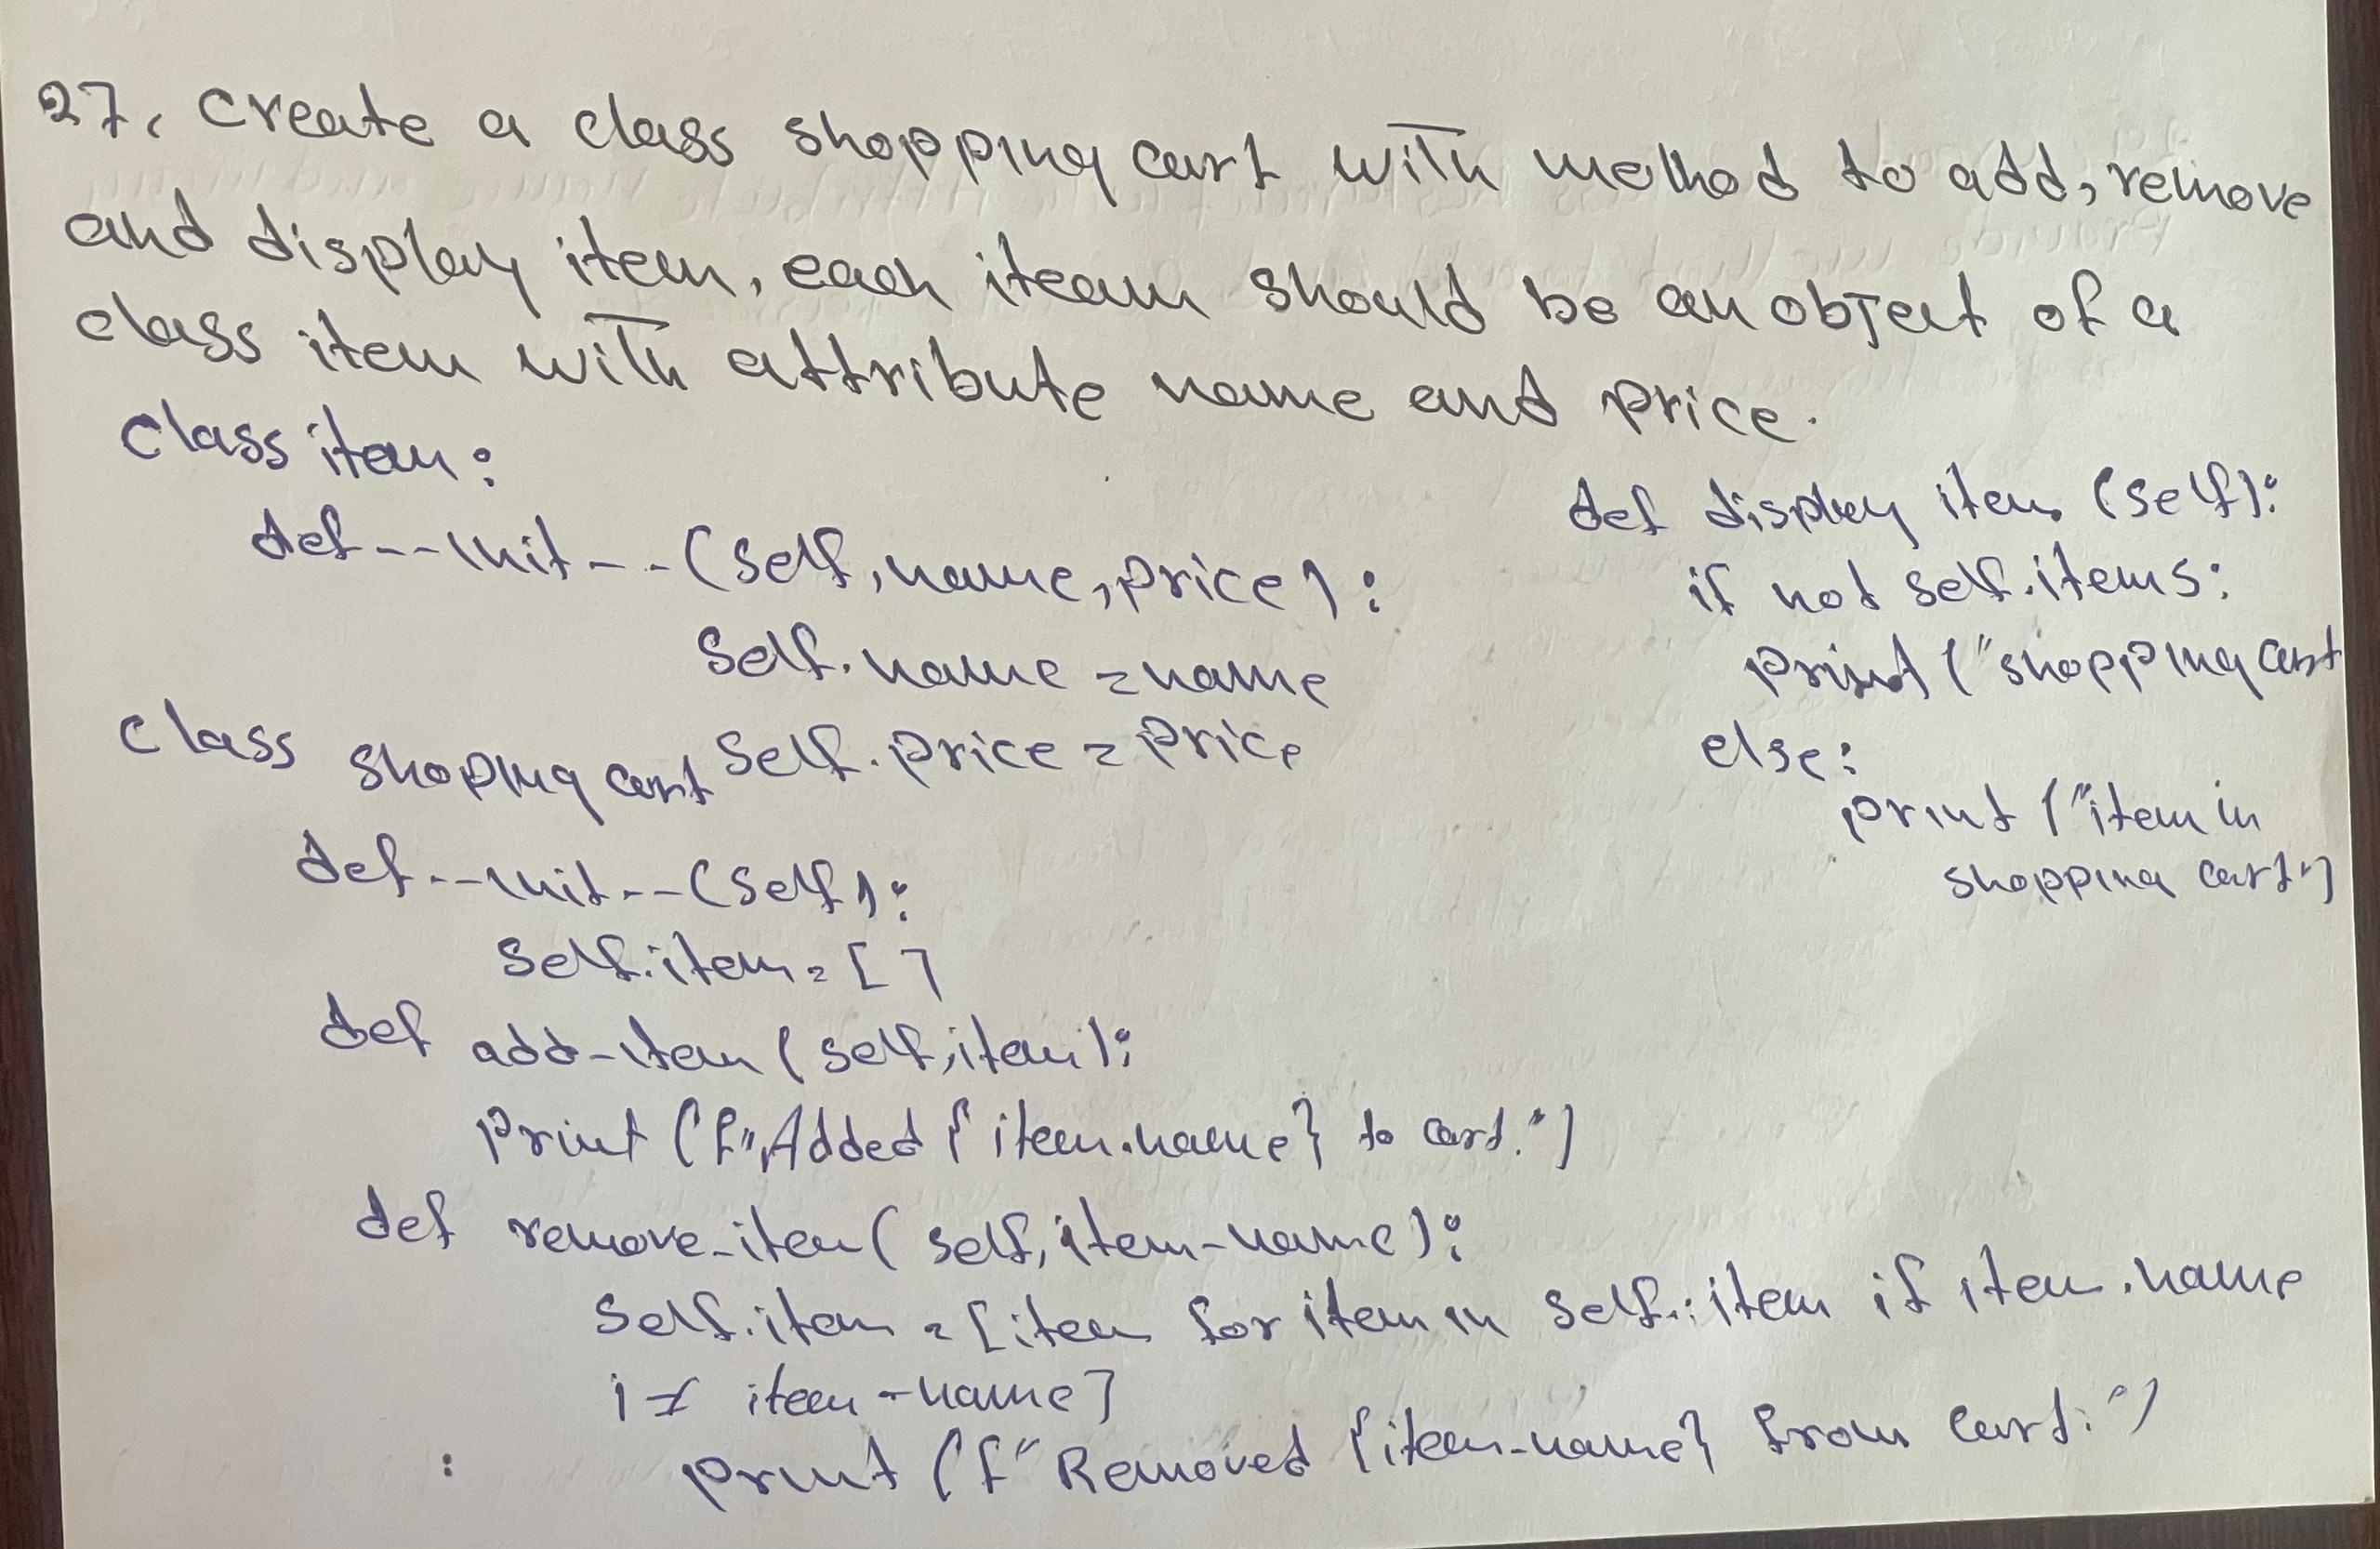 27. Create a class shopping cart with method to add, remove
and display item, each iteam should be an object of a
class item with attribute name and price.
Class item:
def--init--(self,name,price):
Self.name =name
Self.price=price
Class shoping cart
def--init--(self):
self.item=[]
def add-item(self,item):
Print (f",Added {item.name} to cart.")
def remove-item(self,item-name):
Self.item =[item for item in self.:item if item.name
!= item-name]
print (f"Removed {item-name} from cart.")
def display item (self):
if not self.items:
print ("shopping cart
else:
print ("item in
shopping cart")